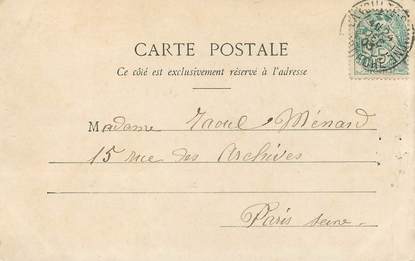 CARTE POSTALE
Ce côté est exclusivement réservé à l'adresse
Madame Raoul Ménard
15 rue des Archives
Paris Seine.